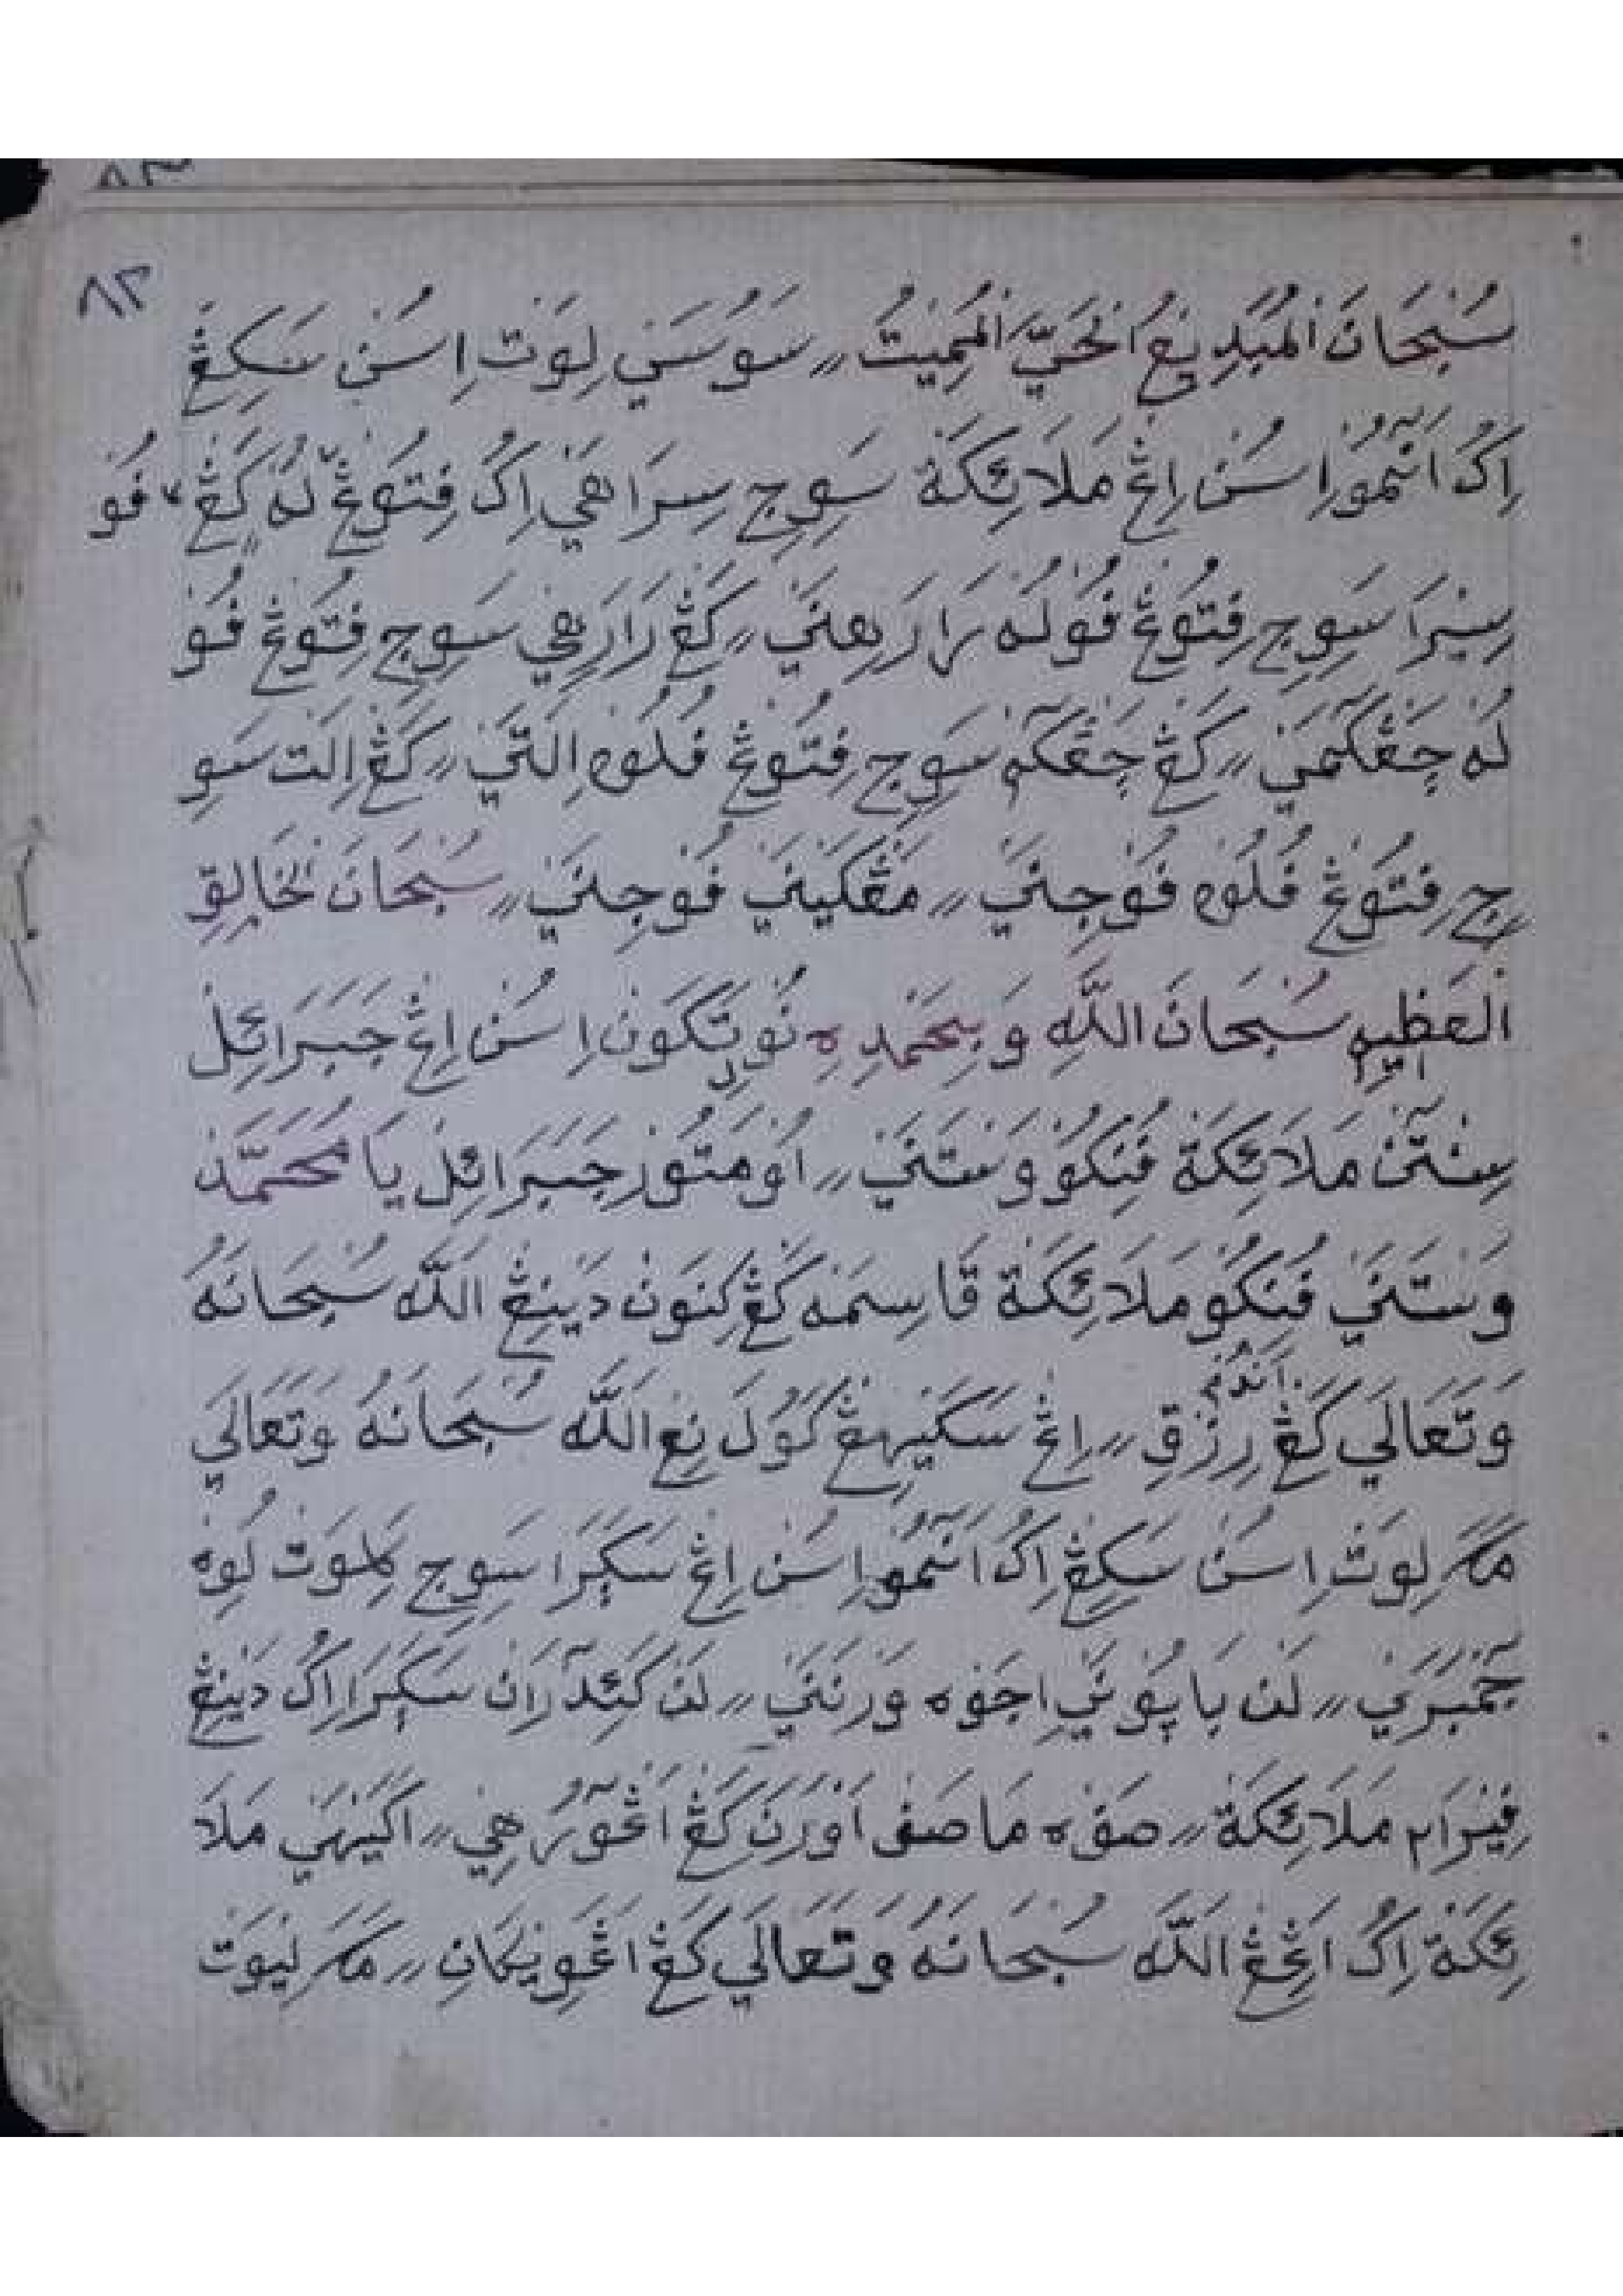 ٨٣
سُبْحَانَ الْمُبْدِيْعُ الْحَيِّ الْمُمِيْتُ ؍؍ سَوُسَيْ لِوَتْ اِسُنْ سَكِڠْ
اِكُ اَنٓمُوْ اِسُنْ اِڠْ مَلَائِكَةْ سَوِجِ سِرَاهَيْ اِكُ فِتُوڠْ لُهْ كَڠْ فُو
سِيْرَا سَوِجِ فِتُوڠْ فُولُهْ رَارَهِنَيْ ؍؍ كَڠْ رَارَهِيْ سَوِجِ فِتُوڠْ فُو
لُهْ چَڠْكٓمَيْ ؍؍ كَڠْ چَڠْكٓمْ سَوِجِ فِتُوڠْ فُلُوهْ اِلَتَيْ ؍؍ كَڠْ اِلَتْ سَوِ
جِ فِتُوڠْ فُلُوهْ فُوْجِنَيْ ؍؍ مَڠْكَيْنَيْ فُوْجِنَيْ ؍؍ سُبْحَانَ الْخَالِقِ
الْعَظِيْمِ سُبْحَانَ اللّٰهِ وَبِحَمْدِهِ نُوْلِ تَكَوْنْ اِسُنْ اِڠْ جَبَرَائِلْ
سِنْتٓنْ مَلَائِكَةْ فُنِكُوْ وَسْتَنَيْ ؍؍ اُوْمَتُوْرْ جَبَرَائِلْ يَا مُحَمَّدْ
وَسْتَنَيْ فُنِكُوْ مَلَائِكَةْ قَاسِمَهْ كَڠْ كِنَوْنْ دَيْنِڠْ اَللّٰه سُبْحَانَهُ
وَتَعَالَي كَڠْ اَندُمْ رِزْقِ ؍؍ اِڠْ سَكَيْهِڠْ كَوُوْلَ نِڠْ اَللّٰه سُبْحَانَهُ وَتَعَالَي
مَكَ لِوَتْ اِسُنْ سَكِڠْ اِكُ اَنٓمُوْ اِسُنْ اِڠْ سَكَرَا سَوِجِ كَلِوَتْ لُوِهْ
جٓمْبَرَيْ ؍؍ لَنْ بَاپُوْنَيْ اِجَوْهْ وَرْنَنَيْ ؍؍ لَنْ كَئِدٓرَانْ سَكَرَا اِكُ دَيْنِڠْ
فِيْرَاڠْ مَلَائِكَةْ ؍؍ صَفْهْ مَا صَفْ اَوْرَنَ كَڠْ اَڠٓوْرُهِيْ ؍؍ اَكَيْهَيْ مَلَا
ئِكَةْ اِكُ اَڠِڠْ اَللّٰه سُبْحَانَهُ وَتَعَالَي كَڠْ اَڠَوِيْكَانِ ؍؍ مَكَ لِيْوَتْ